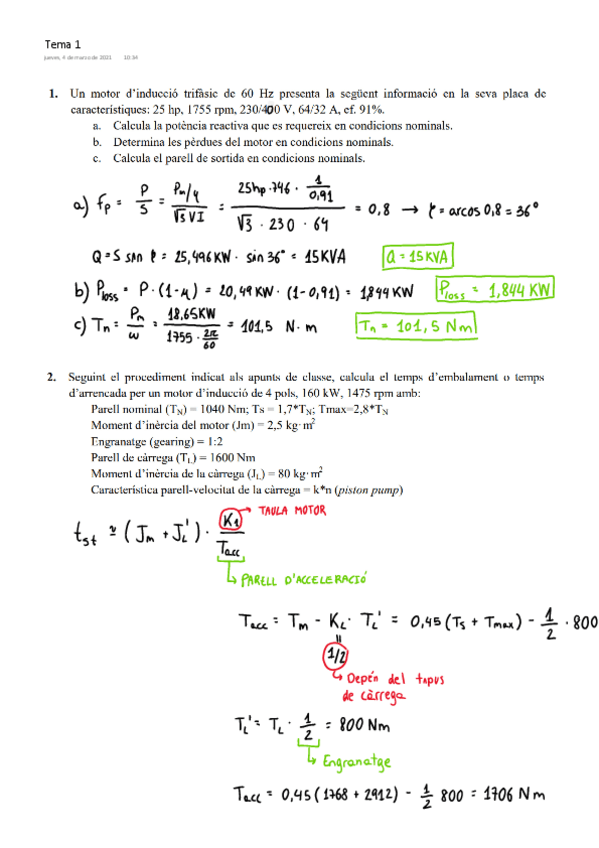 Tema 1
jueves, 4 de marzo de 2021 10:34
1. Un motor d'inducció trifàsic de 60 Hz presenta la següent informació en la seva placa de
característiques: 25 hp, 1755 rpm, 230/400 V, 64/32 A, ef. 91%.
a. Calcula la potència reactiva que es requereix en condicions nominals.
b. Determina les pèrdues del motor en condicions nominals.
c. Calcula el parell de sortida en condicions nominals.
a) fp = P/S = (Pn/η)/(√3 V I) = (25hp·746 · 1/0,91)/(√3 · 230 · 64) = 0,8 → φ = arcos 0,8 = 36°
Q = S sin φ = 25,496 KW · sin 36° = 15 KVA Q = 15 KVA
b) Ploss = P · (1-η) = 20,49 KW · (1-0,91) = 1,844 KW Ploss = 1,844 KW
c) Tn = Pn/ω = 18,65KW/(1755 · 2π/60) = 101,5 N·m Tn = 101,5 Nm
2. Seguint el procediment indicat als apunts de classe, calcula el temps d'embalament o temps
d'arrencada per un motor d'inducció de 4 pols, 160 kW, 1475 rpm amb:
Parell nominal (TN) = 1040 Nm; Ts = 1,7*TN; Tmax=2,8*TN
Moment d'inèrcia del motor (Jm) = 2,5 kg·m²
Engranatge (gearing) = 1:2
Parell de càrrega (TL) = 1600 Nm
Moment d'inèrcia de la càrrega (JL) = 80 kg·m²
Característica parell-velocitat de la càrrega = k*n (piston pump)
tst ≃ (Jm + JL') · K1/Tacc → TAULA MOTOR
↳ PARELL D'ACCELERACIÓ
Tacc = Tm - KL · TL' = 0,45 (Ts + Tmax) - 1/2 · 800
1/2
↳ Depén del tipus
de càrrega
TL' = TL · 1/2 = 800 Nm
↳ Engranatge
Tacc = 0,45 (1768 + 2912) - 1/2 800 = 1706 Nm